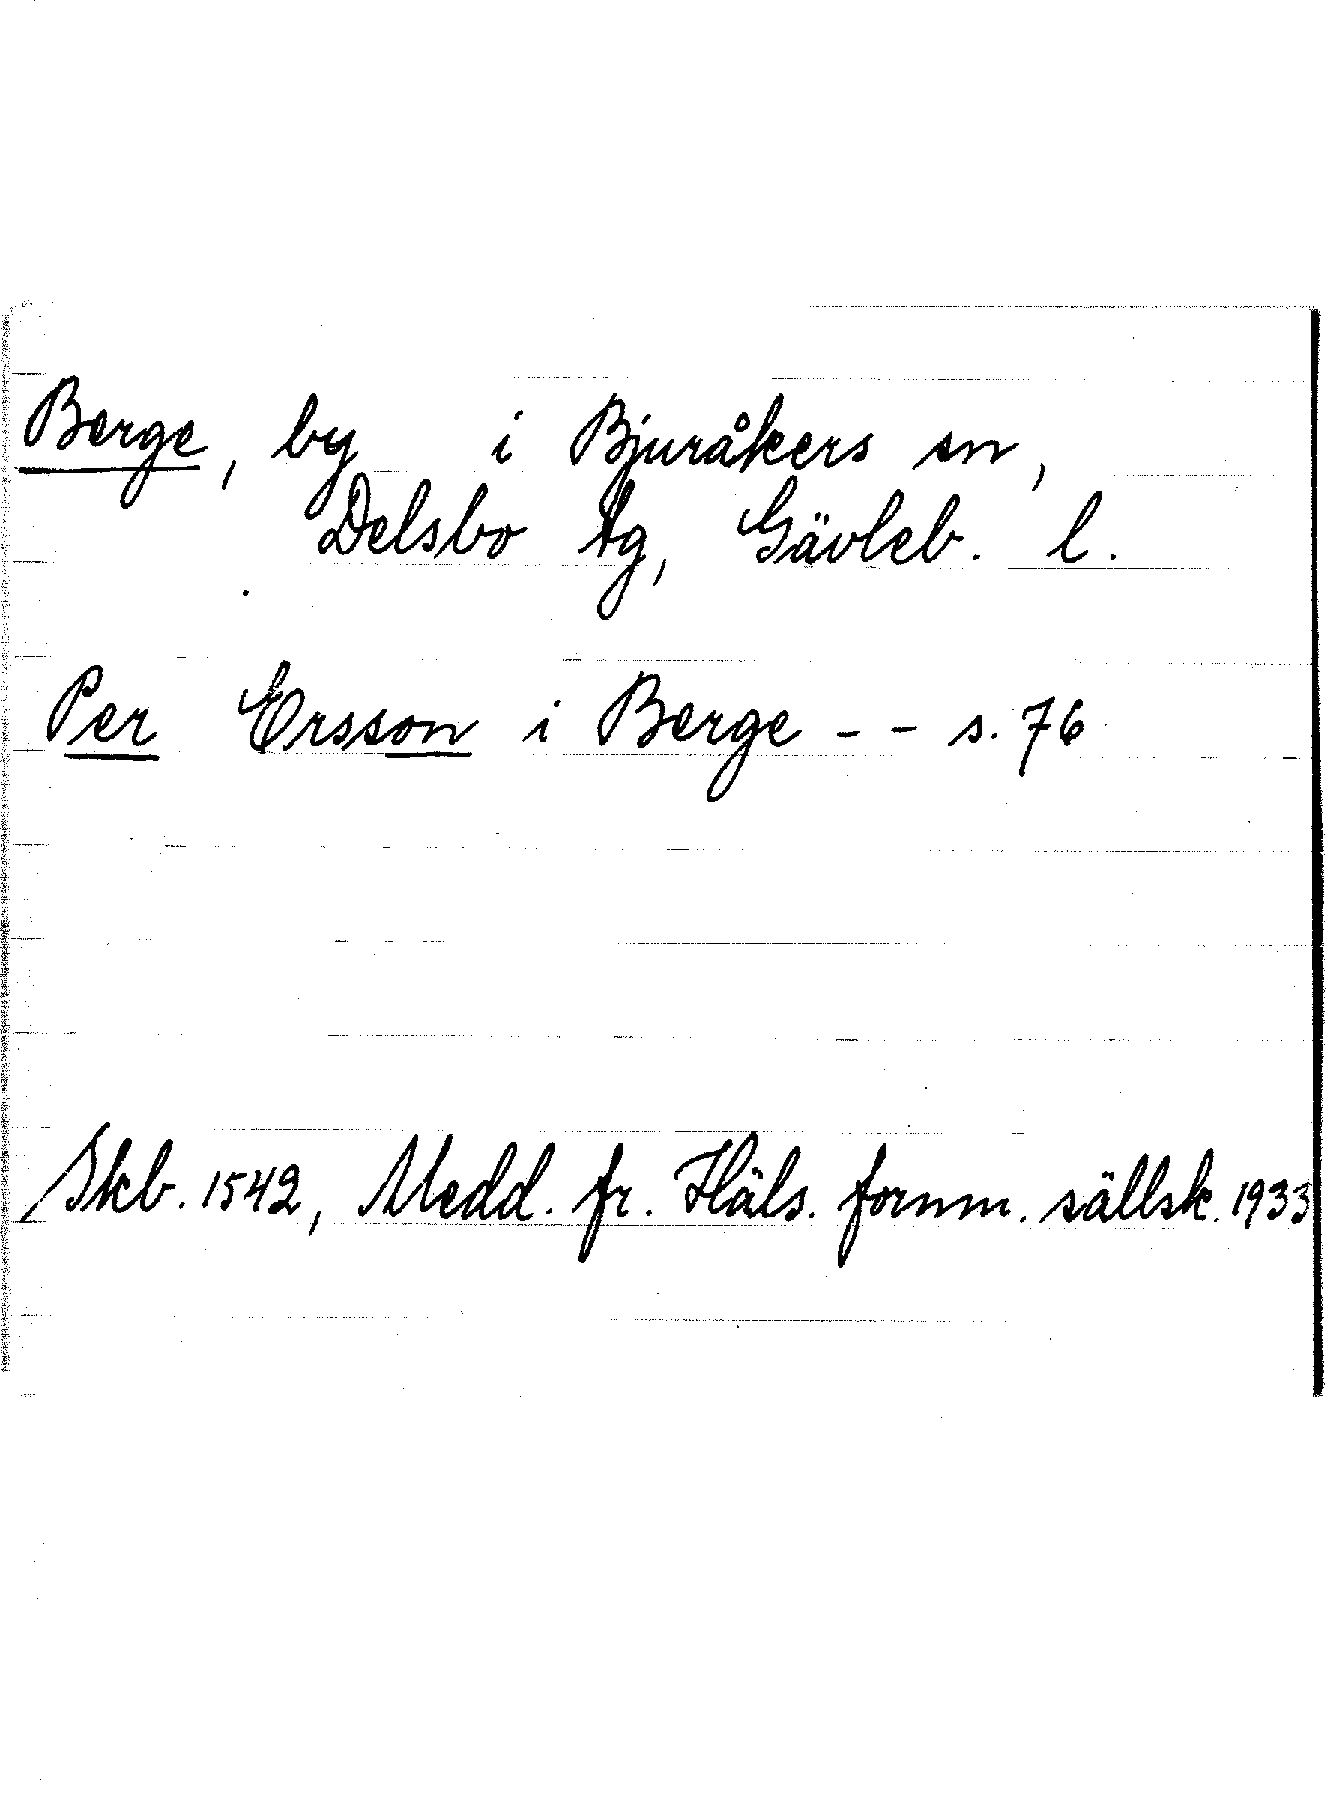 Berge, by i Bjuråkers sn,
Delsbo tg, Gävleb. l.
Per Ersson i Berge - - s. 76
Skb. 1542, Medd. fr. Häls. fornm. sällsk. 1933